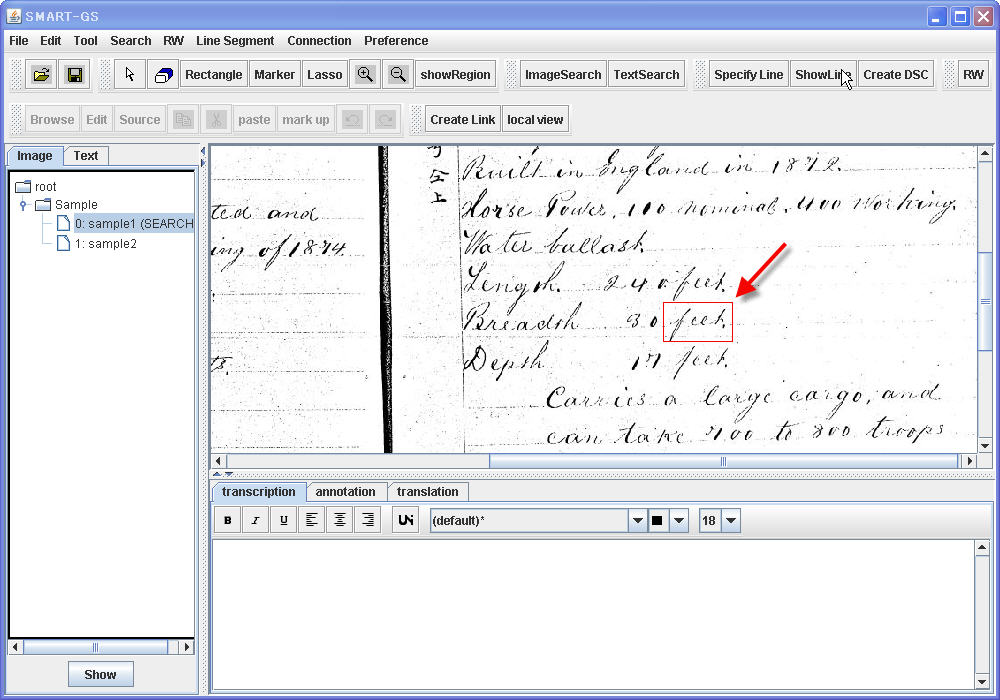 SMART-GS
File Edit Tool Search RW Line Segment Connection Preference
Rectangle Marker Lasso showRegion ImageSearch TextSearch Specify Line ShowLine Create DSC RW
Browse Edit Source paste mark up Create Link local view
Image Text
root
Sample
0: sample1 (SEARCH
1: sample2
Show
ted and
ing of 1874.
ts.
Built in England in 1872.
Horse Power, 110 nominal, 400 Working.
Water ballast.
Length. 240 feet.
Breadth 30 feet.
Depth 17 feet.
Carries a large cargo, and
can take 700 to 800 troops
transcription annotation translation
B I U UN (default)* 18